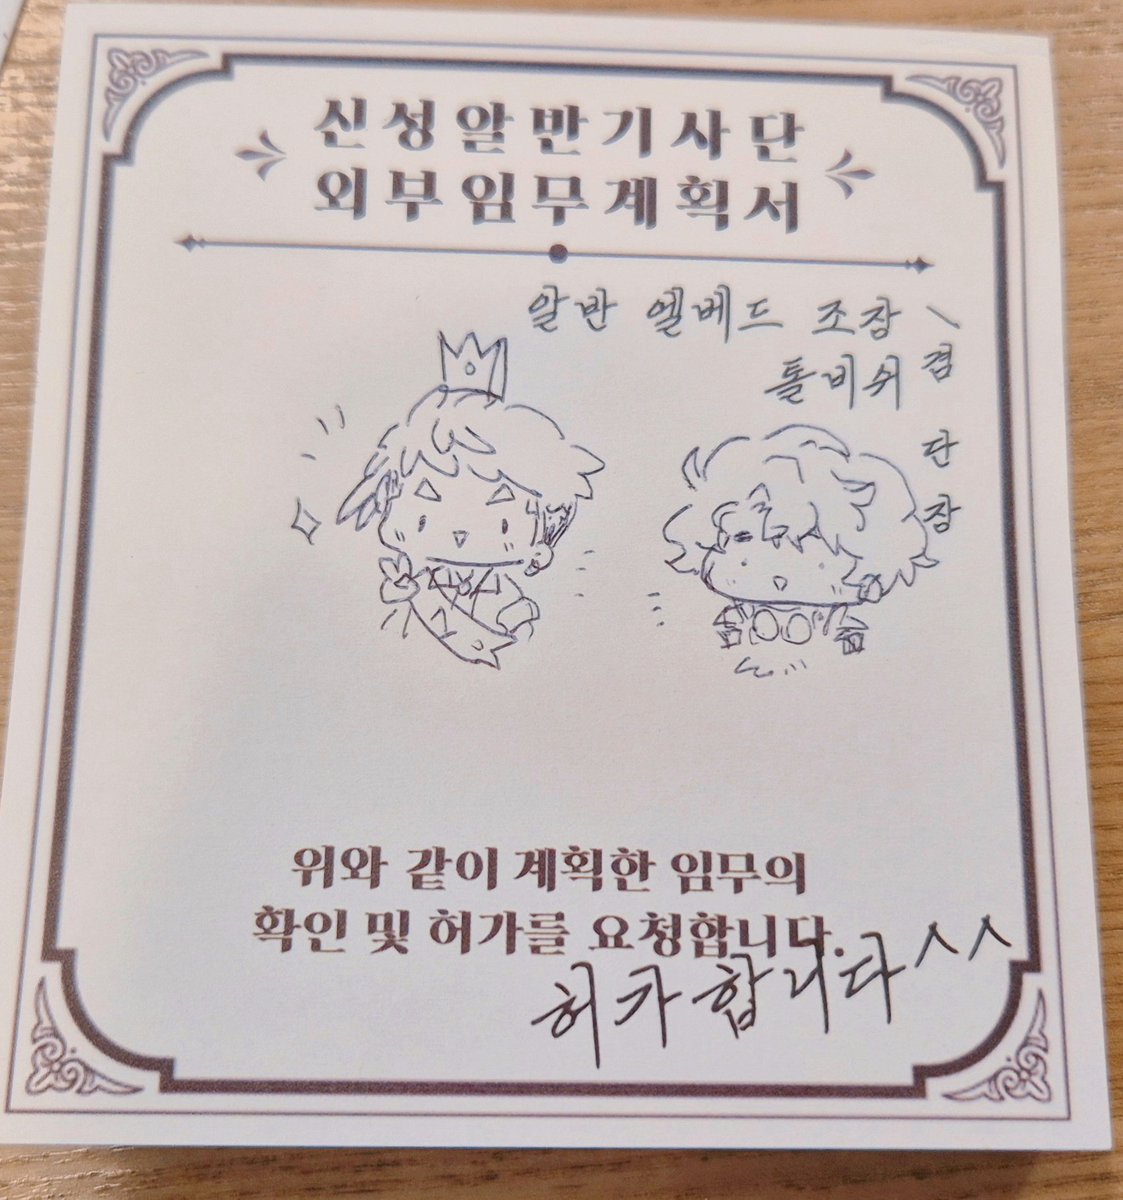 신성알반기사단
외부임무계획서
알반 엘베드 조장
톨비쉬
겸 단장
위와 같이 계획한 임무의
확인 및 허가를 요청합니다.
허가합니다^^